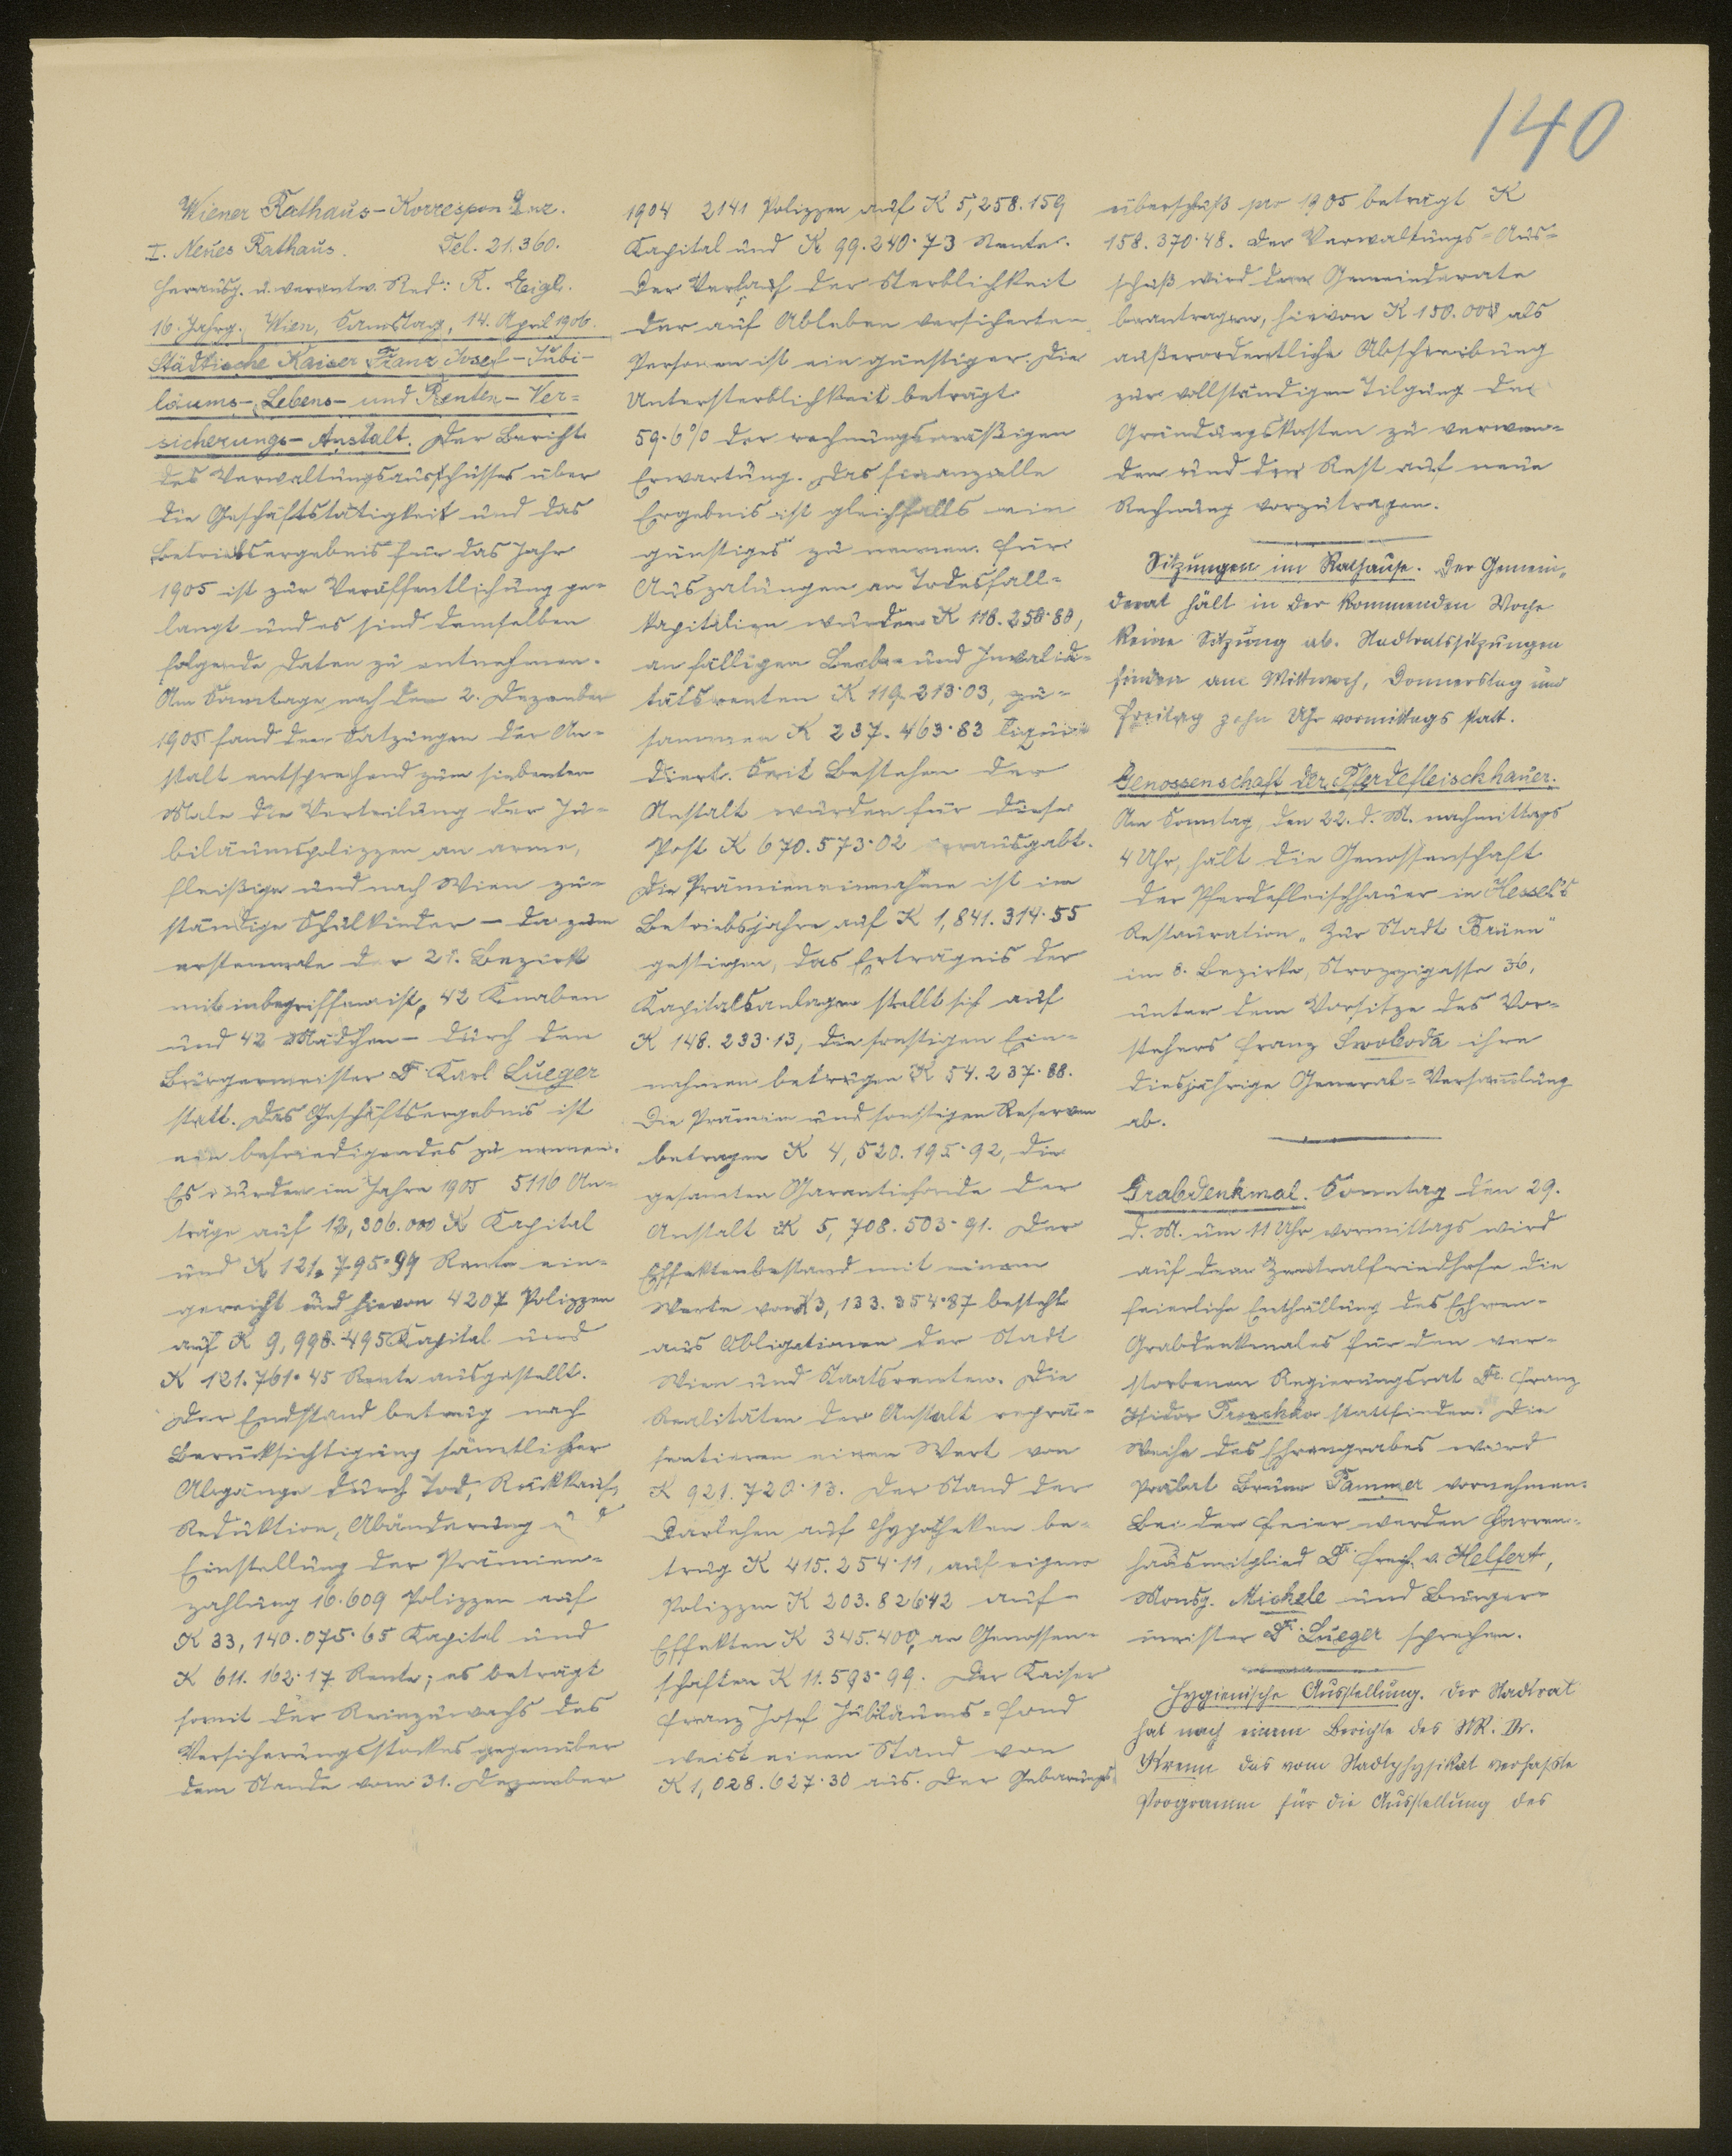 140
Wiener Rathaus-Korrespondenz.
I. Neues Rathaus. Tel. 21.360.
Herausg. u. verantw. Red: R. Eigl.
16. Jahrg. Wien, Samstag, 14. April 1906.
Städtische Kaiser Franz Josef-Jubi-
läums-, Lebens- und Renten-Ver-
sicherungs-Anstalt. Der Bericht
des Verwaltungsausschusses über
die Geschäftstätigkeit und das
Betriebsergebnis für das Jahr
1905 ist zur Veröffentlichung ge-
langt und es sind demselben
folgende Daten zu entnehmen.
Am Samstage nach dem 2. Dezember
1905 fand den Satzungen der An-
stalt entsprechend zum siebenten
Male die Verteilung der Ju-
biläumspolizzen an arme,
fleißige und nach Wien zu-
ständige Schulkinder – da zum
erstenmale der 21. Bezirk
mit inbegriffen ist, 42 Knaben
und 42 Mädchen – durch den
Bürgermeister Dr. Karl Lueger
statt. Das Geschäftsergebnis ist
ein befriedigendes zu nennen.
Es wurden im Jahre 1905 5116 An-
träge auf 12,306.000 K Kapital
und K 121.795·99 Rente ein-
gereicht und hievon 4207 Polizzen
auf K 9,998.495 Kapital und
K 121.761·45 Rente ausgestellt.
Der Endstand betrug nach
Berücksichtigung sämtlicher
Abgänge durch Tod, Rückkauf,
Reduktion, Abänderung und
Einstellung der Prämien-
zahlung 16.609 Polizzen auf
K 33,140.075·65 Kapital und
K 611.162·17 Rente; es beträgt
somit der Reinzuwachs des
Versicherungsstockes gegenüber
dem Stande vom 31. Dezember
1904 2141 Polizzen auf K 5,258.159
Kapital und K 99.240·73 Rente.
Der Verlauf der Sterblichkeit
der auf Ableben versicherten
Personen ist ein günstiger. Die
Untersterblichkeit beträgt
59·6% der rechnungsmäßigen
Erwartung. Das finanzielle
Ergebnis ist gleichfalls ein
günstiges zu nennen. Für
Auszalungen an Todesfall-
kapitalien wurden K 118.250·80,
an fälligen Leib- und Invalidi-
tätsrenten K 119.213·03, zu-
sammen K 237.463·83 liqui-
diert. Seit Bestehen der
Anstalt wurden für diese
Post K 670.573·02 verausgabt.
Die Prämieneinnahme ist im
Betriebsjahre auf K 1,841.314·55
gestiegen, das Erträgnis der
Kapitalsanlagen stellt sich auf
K 148.233·13, die sonstigen Ein-
nahmen betrugen K 54.237·88.
Die Prämien und sonstigen Reserven
betragen K 4,520.195·92, die
gesamten Garantiefonde der
Anstalt K 5,708.503·91. Der
Effektenbestand mit einem
Werte von K 3,133.354·87 besteht
aus Obligationen der Stadt
Wien und Staatsrenten. Die
Realitäten der Anstalt reprä-
sentieren einen Wert von
K 921.720·13. Der Stand der
Darlehen auf Hypotheken be-
trug K 415.254·11, auf eigene
Polizzen K 203.826·42 auf
Effekten K 345.400, an Genossen-
schaften K 11.593·99. Der Kaiser
Franz Josef Jubiläums-Fond
weist einen Stand von
K 1,028.627·30 aus. Der Gebarungs-
überschuß pro 1905 beträgt K
158.370·48. Der Verwaltungs-Aus-
schuß wird dem Gemeinderate
beantragen, hievon K 150.000 als
außerordentliche Abschreibung
zur vollständigen Tilgung der
Gründungskosten zu verwen-
den und den Rest auf neue
Rechnung vorzutragen.
Sitzungen im Rathause. Der Gemein-
derat hält in der kommenden Woche
keine Sitzung ab. Stadtratssitzungen
finden am Mittwoch, Donnerstag und
Freitag zehn Uhr vormittags statt.
Genossenschaft der Pferdefleischhauer.
Am Sonntag, den 22. d. M. nachmittags
4 Uhr, hält die Genossenschaft
der Pferdefleischhauer in Hessel's
Restauration „Zur Stadt Brünn"
im 8. Bezirke, Strozzigasse 36,
unter dem Vorsitze des Vor-
stehers Franz Swoboda ihre
diesjährige General-Versammlung
ab.
Grabdenkmal. Sonntag den 29.
d. M. um 11 Uhr vormittags wird
auf dem Zentralfriedhofe die
feierliche Enthüllung des Ehren-
Grabdenkmales für den ver-
storbenen Regierungsrat Dr. Franz
Isidor Proschko stattfinden. Die
Weihe des Ehrengrabes wird
Prälat Bruno Pammer vornehmen.
Bei der Feier werden Herren-
hausmitglied Dr. Freih. v. Helfert,
Monsg. Michele und Bürger-
meister Dr. Lueger sprechen.
Hygienische Ausstellung. Der Stadtrat
hat nach einem Berichte des StR. Dr.
Krenn das vom Stadtphysikat verfaßte
Programm für die Ausstellung des